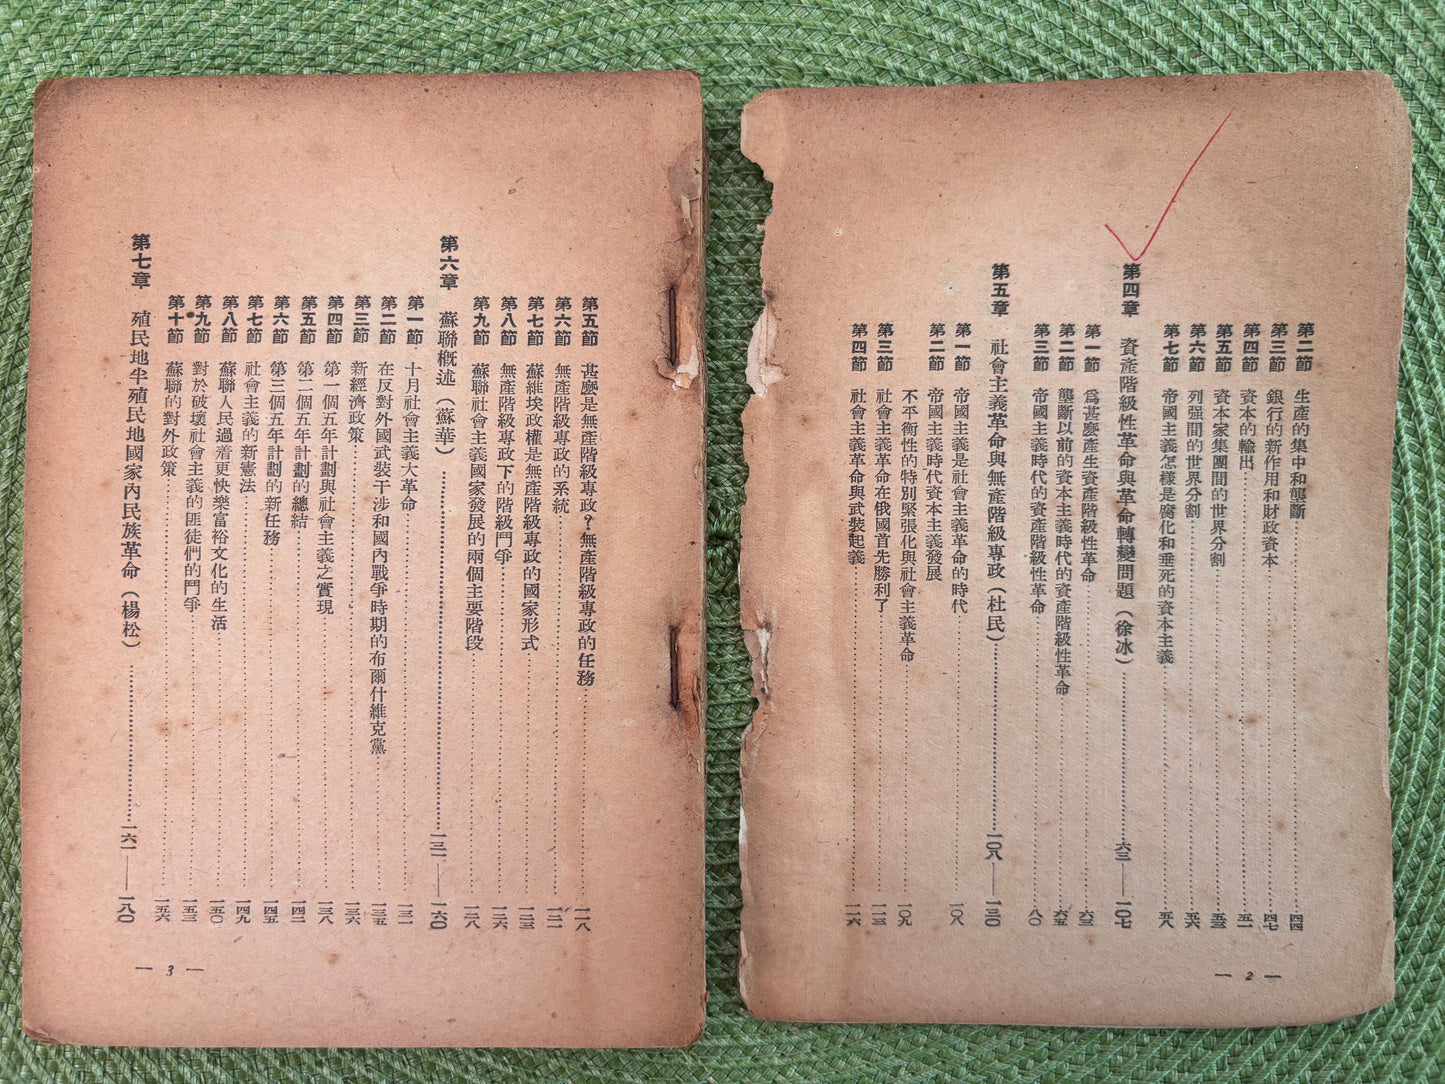 第二節　生產的集中和壟斷……四四
第三節　銀行的新作用和財政資本……四七
第四節　資本的輸出……五一
第五節　資本家集團間的世界分割……五三
第六節　列強間的世界分割……五六
第七節　帝國主義怎樣是腐化和垂死的資本主義……五八
第四章　資產階級性革命與革命轉變問題（徐冰）……六三——一〇七
第一節　爲甚麼產生資產階級性革命……六三
第二節　壟斷以前的資本主義時代的資產階級性革命……六五
第三節　帝國主義時代的資產階級性革命……八〇
第五章　社會主義革命與無產階級專政（杜民）……一〇八——一三〇
第一節　帝國主義是社會主義革命的時代……一〇八
第二節　帝國主義時代資本主義發展
不平衡性的特別緊張化與社會主義革命……一〇九
第三節　社會主義革命在俄國首先勝利了……一一三
第四節　社會主義革命與武裝起義……一一六
— 2 —
第五節　甚麼是無產階級專政？無產階級專政的任務……一一八
第六節　無產階級專政的系統……一二一
第七節　蘇維埃政權是無產階級專政的國家形式……一二三
第八節　無產階級專政下的階級鬥爭……一二六
第九節　蘇聯社會主義國家發展的兩個主要階段……一二八
第六章　蘇聯概述（蘇華）……一三一——一六〇
第一節　十月社會主義大革命……一三一
第二節　在反對外國武裝干涉和國內戰爭時期的布爾什維克黨……一三五
第三節　新經濟政策……一三六
第四節　第一個五年計劃與社會主義之實現……一三八
第五節　第二個五年計劃的總結……一四二
第六節　第三個五年計劃的新任務……一四五
第七節　社會主義的新憲法……一四九
第八節　蘇聯人民過着更快樂富裕文化的生活……一五〇
第九節　對於破壞社會主義的匪徒們的鬥爭……一五三
第十節　蘇聯的對外政策……一五六
第七章　殖民地半殖民地國家內民族革命（楊松）……一六一——一八〇
— 3 —